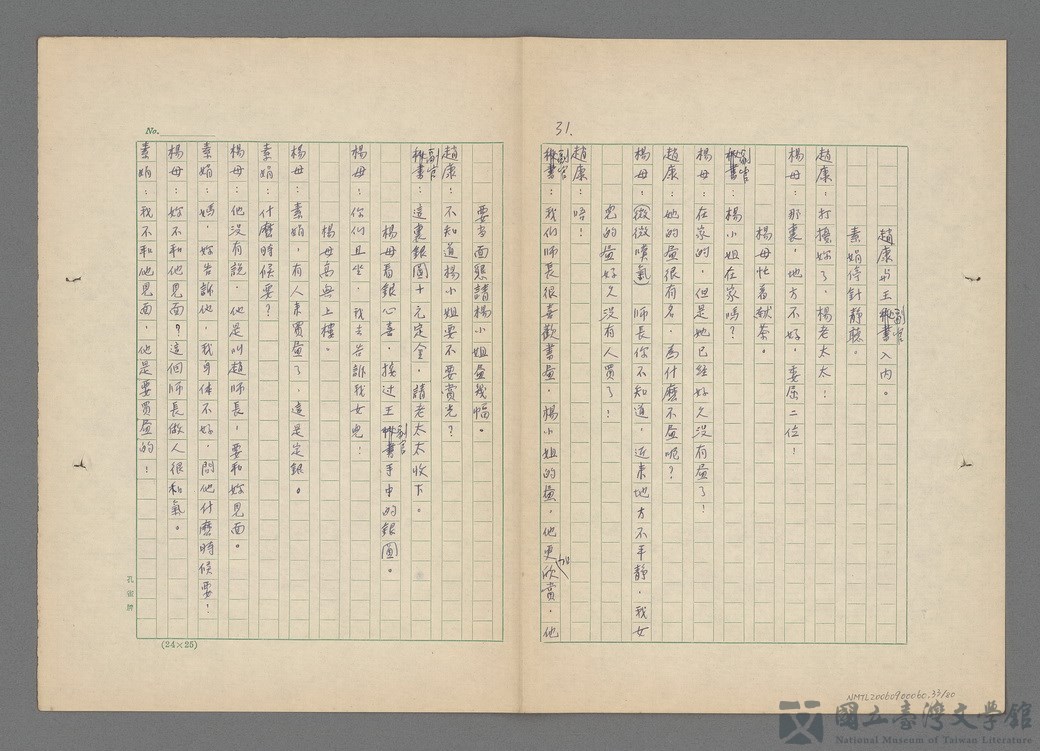 31.
趙康与王秘書副官入內。
素娟停針靜聽。
趙康：打擾妳了，楊老太太：
楊母：那裏，地方不好，委屈二位！
楊母忙着献茶。
秘書副官：楊小姐在家嗎？
楊母：在家的，但是她已経好久没有畫了！
趙康：她的畫很有名，為什麽不畫呢？
楊母：(微微嘆氣) 师長你不知道，近來地方不平靜，我女
兒的畫好久没有人買了！
趙康：唔！
秘書副官：我们师長很喜歡書畫，楊小姐的畫，他更加欣賞，他
No.
要当面懇請楊小姐畫幾幅。
趙康：不知道楊小姐要不要賞光？
秘書副官：這裏銀圓十元定金，請老太太收下。
楊母看銀心喜，接过王秘書副官手中的銀圓。
楊母：你们且坐，我去告訴我女兒：
楊母高興上樓。
楊母：素娟，有人來買畫了，這是定銀。
素娟：什麽時候要？
楊母：他没有說，他是叫趙师長，要和妳見面。
素娟：媽，妳告訴他，我身体不好，問他什麽時候要！
楊母：妳不和他見面？這個师長做人很和氣。
素娟：我不和他見面，他是要買畫的！
孔雀牌
(24×25)
NMTL20060900060.33/80
國立臺灣文學館
National Museum of Taiwan Literature